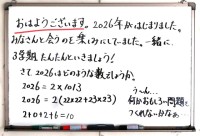 おはようございます。2026年がはじまりました。
みなさんと会うのを楽しみにしていました。一緒に
3学期、たんたんといきましょう!
さて2026はどのような数でしょうか。
2026=2×1013
2026=2(22×22+23×23)
2+0+2+6=10
うーん…
何かおもしろい問題を
つくれないかなぁ